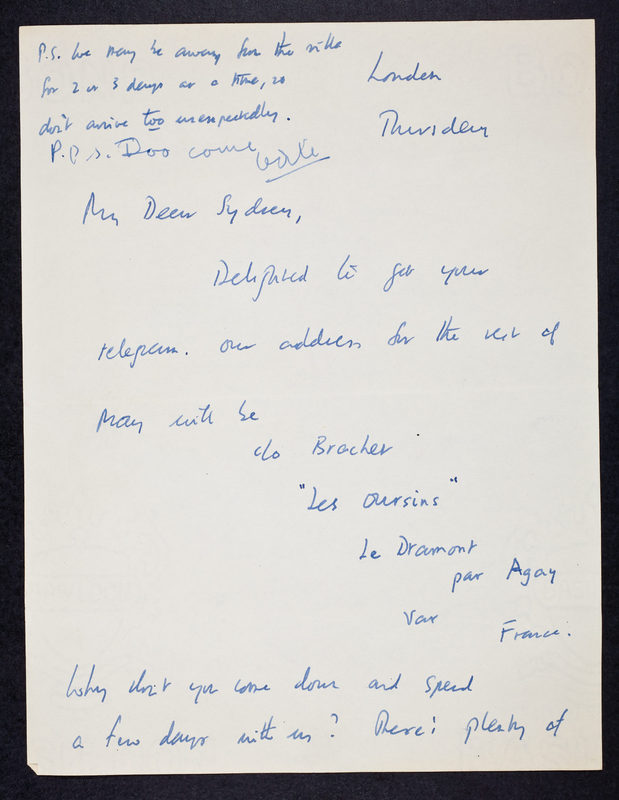 P.S. We may be away from the villa
for 2 or 3 days at a time, so
don't arrive too unexpectedly.
P.P.S. Doo come
London
Thursday
My Dear Sydney,
Delighted to get your
telegram. Our address for the rest of
May will be
c/o Bracher
"Les Oursins"
Le Dramont
par Agay
Var
France.
Why don't you come down and spend
a few days with us? There's plenty of